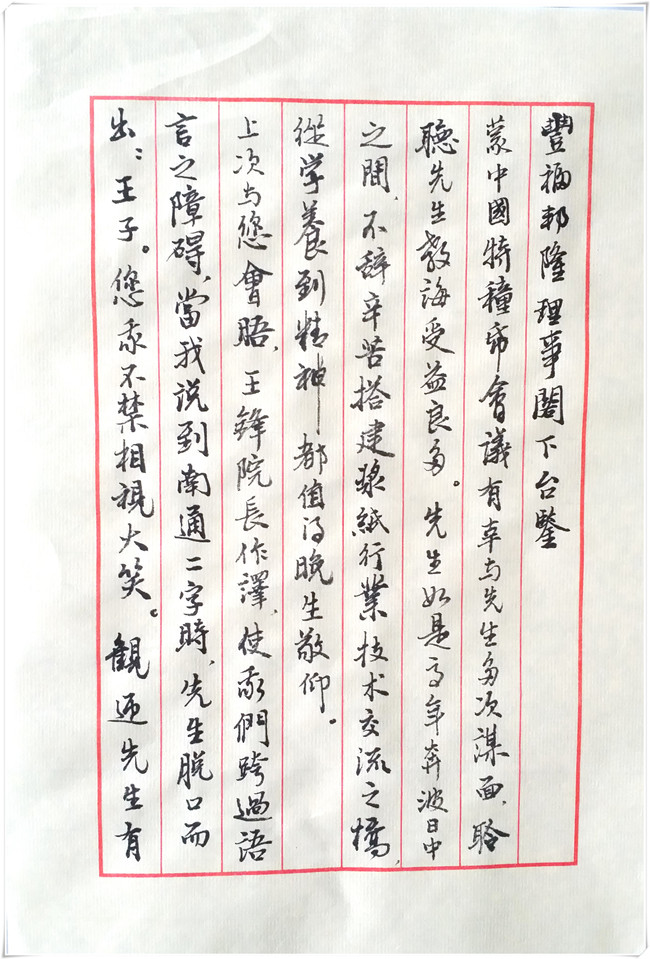 豐福邦隆理事閣下台鑒
蒙中國特種帋會議有幸与先生多次謀面，聆
聽先生教誨受益良多。先生如是高年奔波日中
之間，不辭辛苦搭建漿紙行業技术交流之橋，
從学養到精神都值得晚生敬仰。
上次与您會晤，王鋒院長作譯，使我們跨過語
言之障碍，當我说到南通二字時，先生脫口而
出：王子。您我不禁相視大笑。觀迎先生有